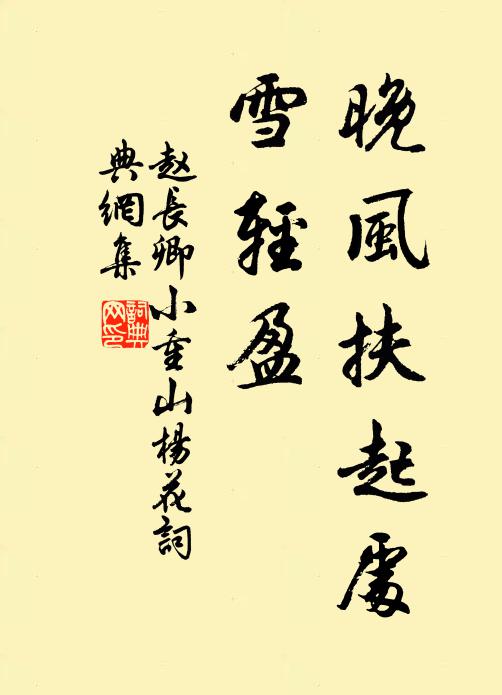 晚風扶起處
雪輕盈
赵長卿小重山楊花詞
典網集
詞典
网印